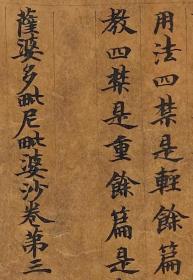 用法四禁是輕餘篇
教四禁是重餘篇是
薩婆多毗尼毗婆沙卷第三